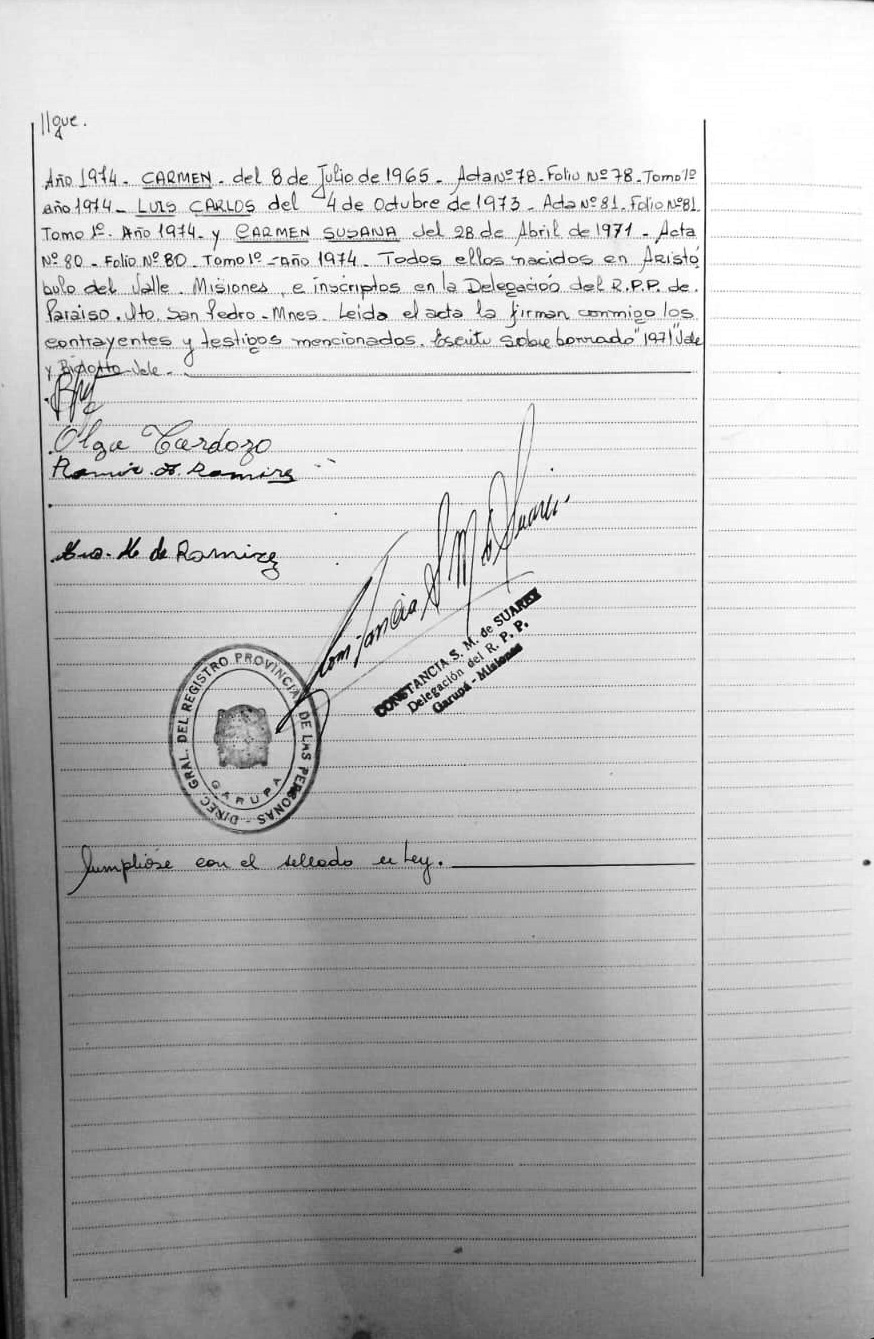 llgue.
Año 1974. CARMEN. del 8 de Julio de 1965. Acta Nº 78. Folio Nº 78. Tomo 1º
año 1974. LUIS CARLOS del 4 de Octubre de 1973. Acta Nº 81. Folio Nº 81
Tomo 1º. Año 1974. y CARMEN SUSANA del 28 de Abril de 1971. Acta
Nº 80. Folio Nº 80. Tomo 1º. Año 1974. Todos ellos nacidos en Aristó
bulo del Valle. Misiones, e inscriptos en la Delegació del R.P.P. de.
Paraiso. Dto. San Pedro. Mnes. Leida el acta la firman conmigo los
contrayentes y testigos mencionados. Escrito sobre borrado "1971" Vale
y Vale.
Olga Cardozo
Ramirez
de Ramirez
Constancia S. M. de Suarez.
CONSTANCIA S. M. de SUAREZ
Delegación del R. P. P.
Garupá - Misiones
DIREC. GRAL. DEL REGISTRO PROVINCIAL DE LAS PERSONAS
GARUPA
Cumplióse con el sellado en Ley.